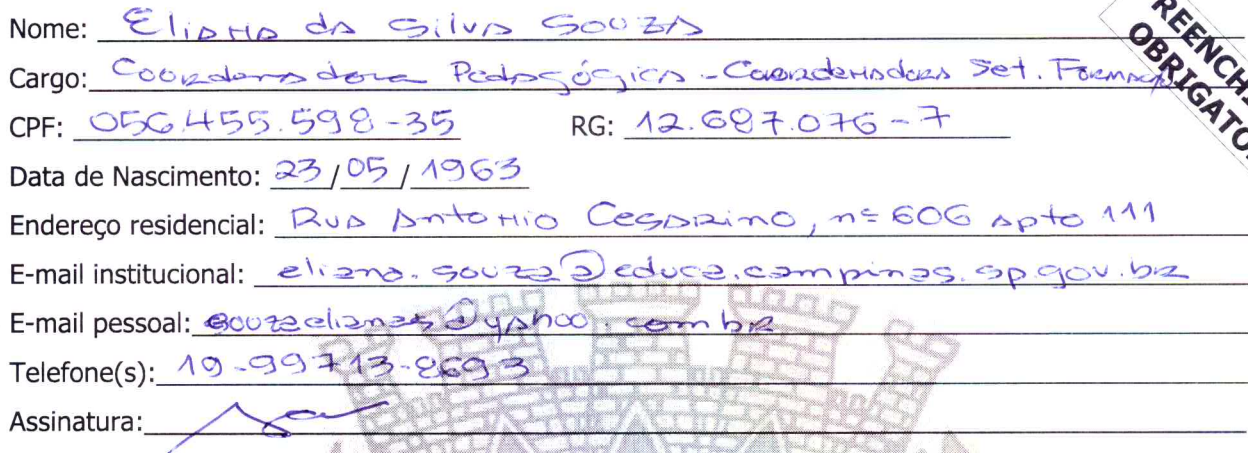 Nome: Eliana da Silva Souza
Cargo: Coordenadora Pedagógica - Coordenadora Set. Formação
CPF: 056.455.598-35 RG: 12.687.076-7
Data de Nascimento: 23/05/1963
Endereço residencial: Rua Antonio Cesarino, nº 606 apto 111
E-mail institucional: eliana.souza@educa.campinas.sp.gov.br
E-mail pessoal: souzaelianas@yahoo.com.br
Telefone(s): 19-99713-8693
Assinatura:
REENCHI
OBRIGATÓ